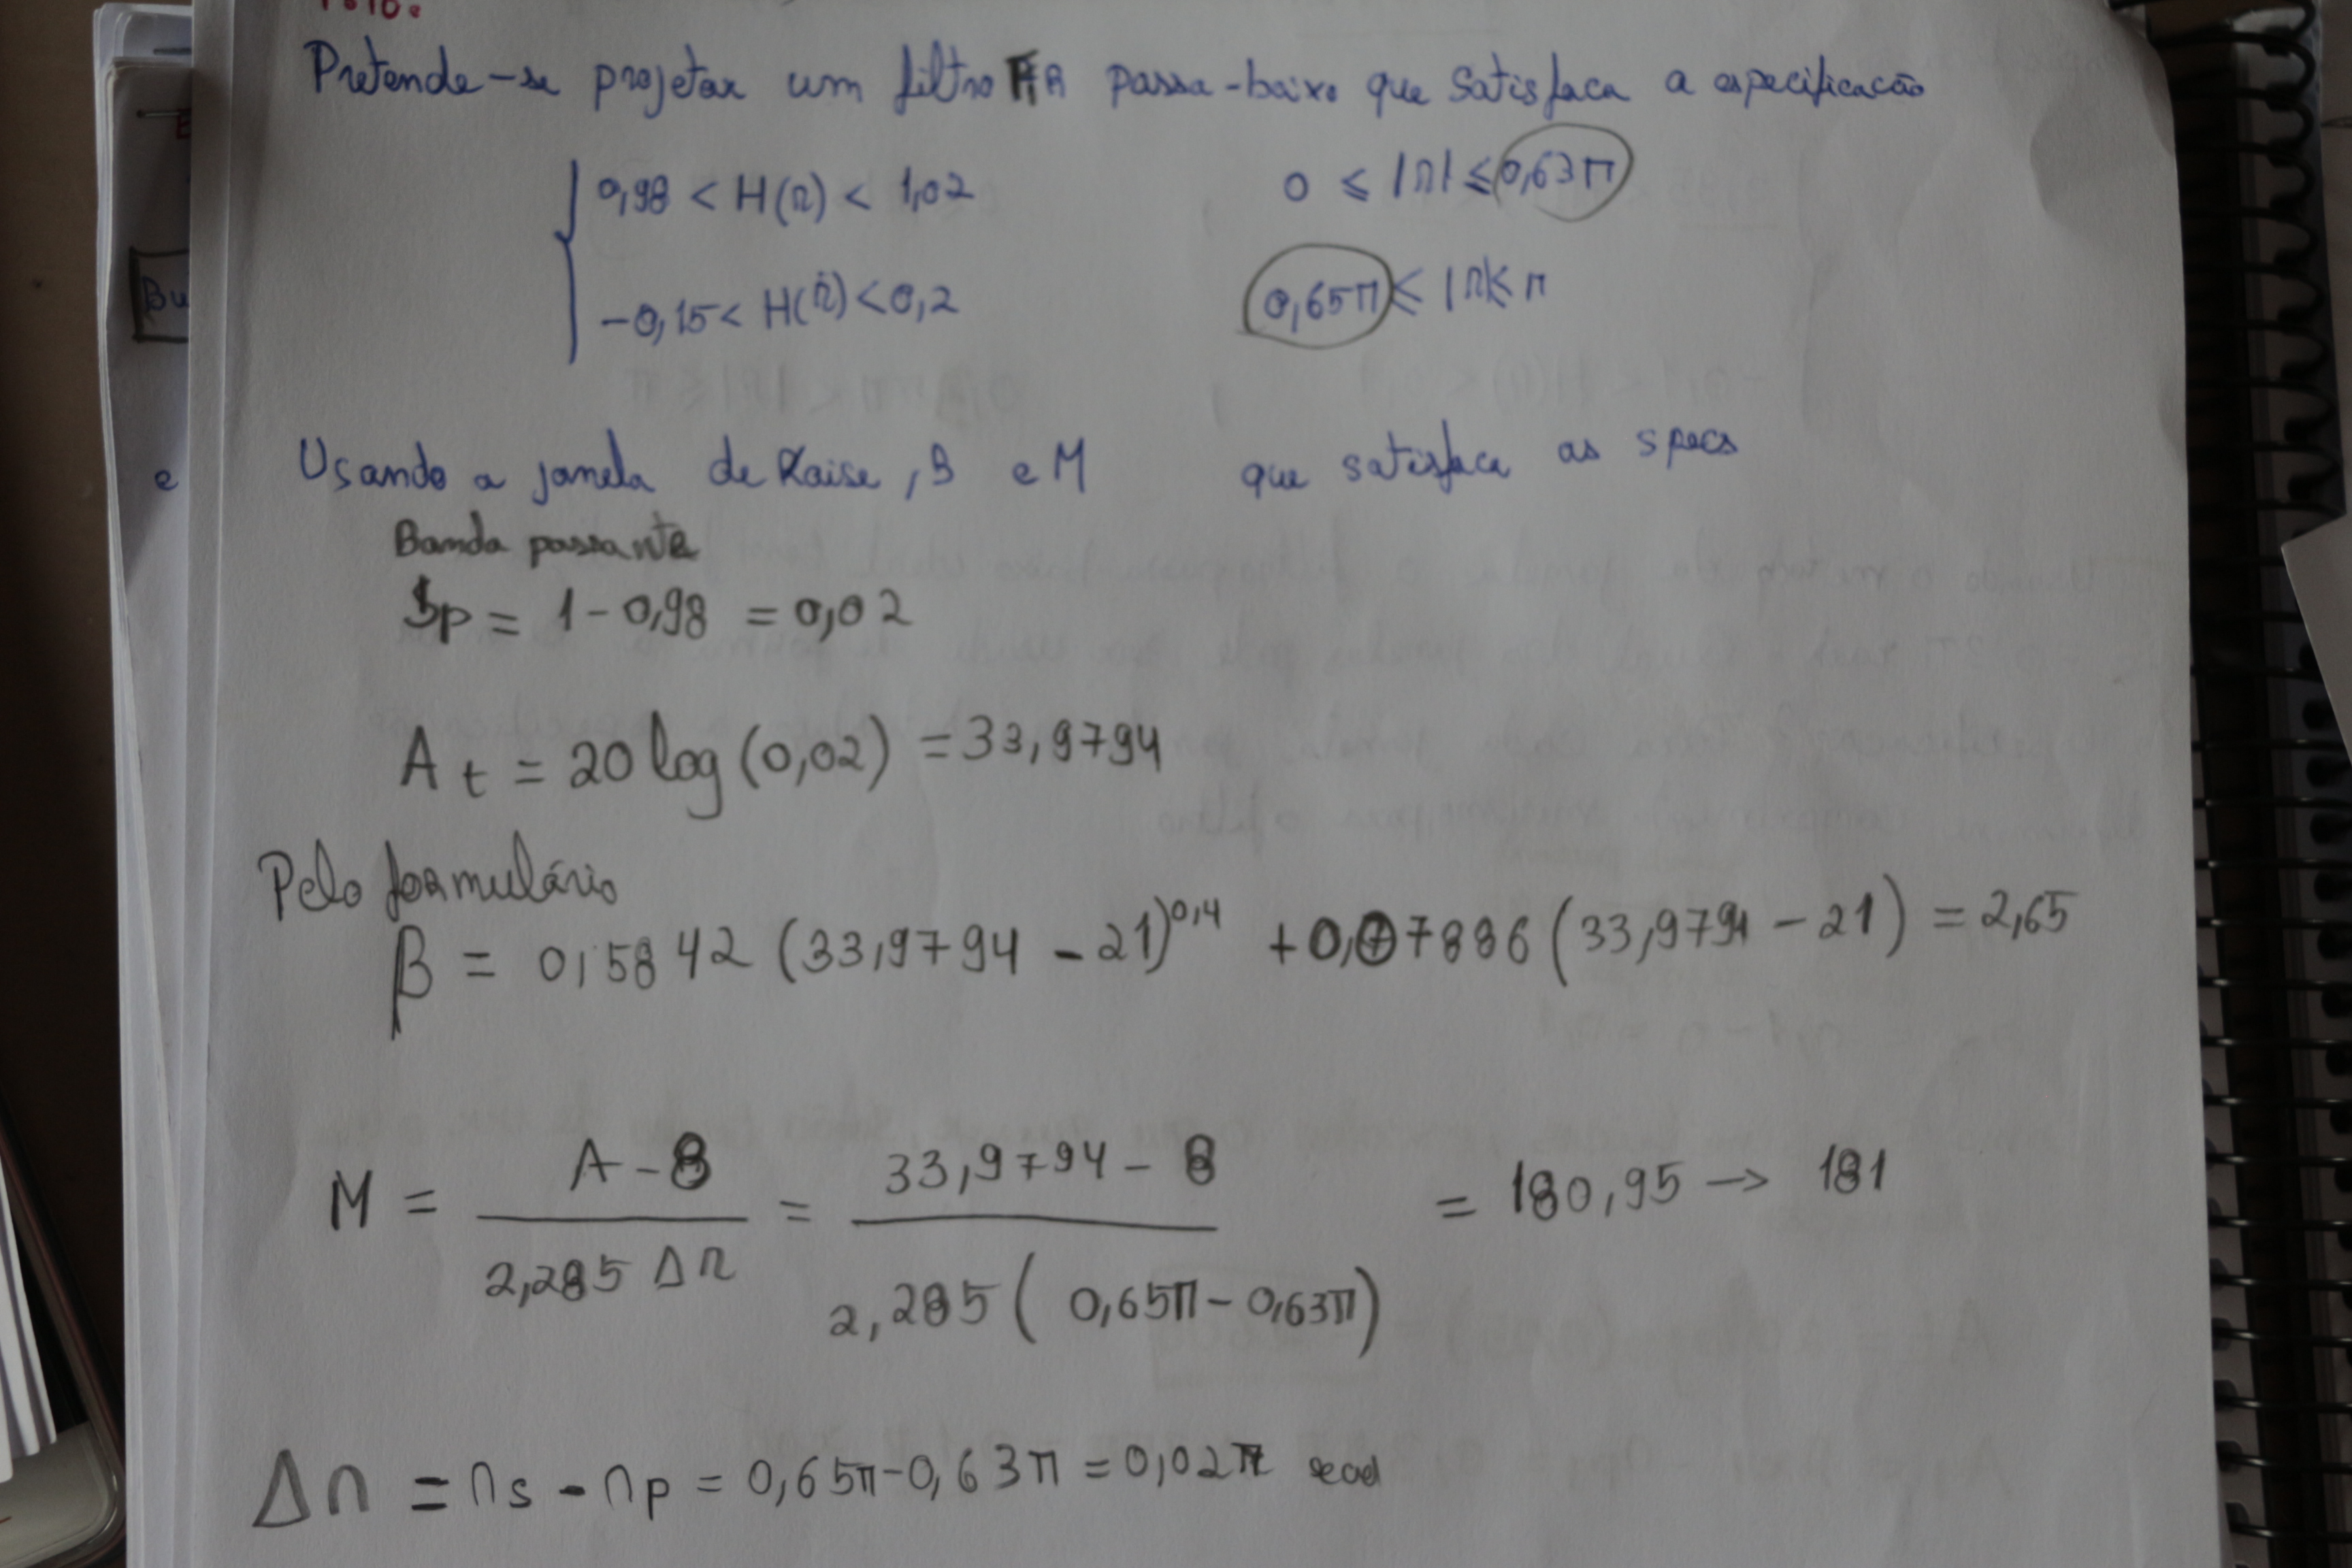 Pretende-se projetar um filtro FIR passa-baixo que satisfaca a especificacão
0,98 < H(Ω) < 1,02 0 ≤ |Ω| ≤ 0,63π
-0,15 < H(Ω) < 0,2 0,65π ≤ |Ω| ≤ π
Bu
e
Usando a janela de Kaise, B e M que satisfaca as specs
Banda passante
δp = 1 - 0,98 = 0,02
At = 20 log (0,02) = 33,9794
Pelo formulário
β = 0,5842 (33,9794 - 21)^0,4 + 0,07886 (33,9794 - 21) = 2,65
M = A - 8 / 2,285 ΔΩ = 33,9794 - 8 / 2,285 (0,65π - 0,63π) = 180,95 → 181
ΔΩ = Ωs - Ωp = 0,65π - 0,63π = 0,02π rad